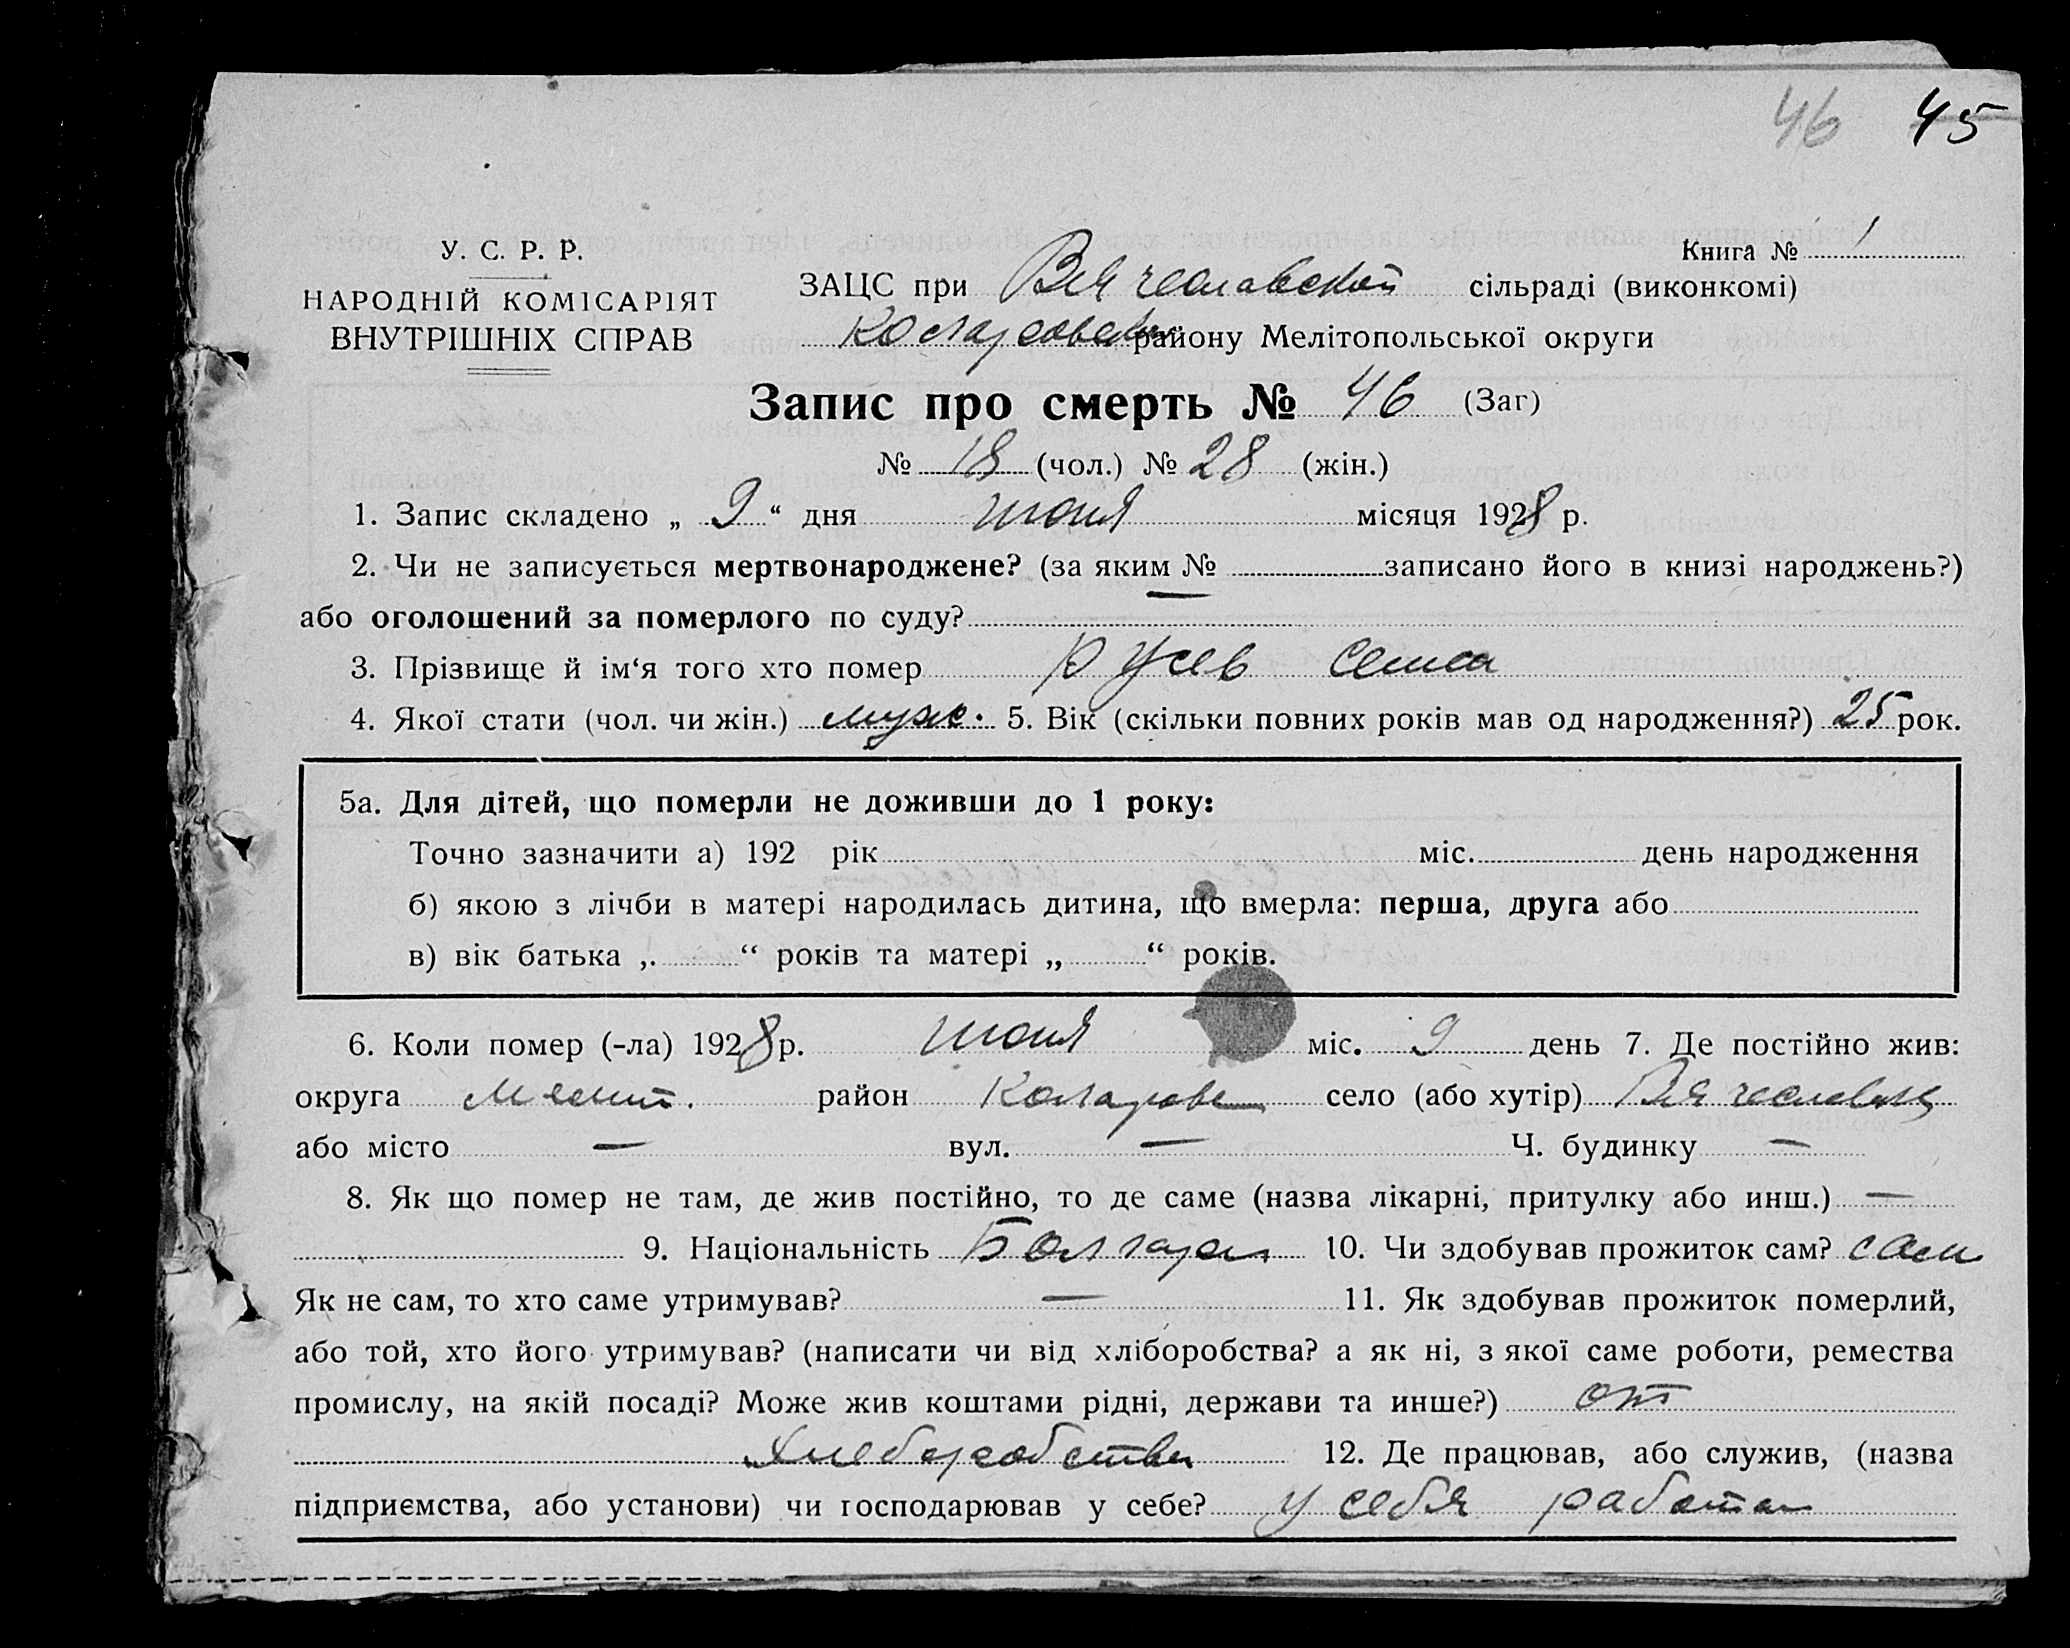 46 45
У. С. Р. Р.
НАРОДНІЙ КОМІСАРІЯТ
ВНУТРІШНІХ СПРАВ
Книга № 1
ЗАЦС при Вячеславской сільраді (виконкомі)
Коларовск району Мелітопольської округи
Запис про смерть № 46 (Заг)
№ 18 (чол.) № 28 (жін.)
1. Запис складено „ 9 “ дня июня місяця 1928 р.
2. Чи не записується мертвонароджене? (за яким № записано його в книзі народжень?)
або оголошений за померлого по суду? —
3. Прізвище й ім‘я того хто помер Русев Семен
4. Якої стати (чол. чи жін.) муж. 5. Вік (скільки повних років мав од народження?) 25 рок.
5а. Для дітей, що померли не доживши до 1 року:
Точно зазначити а) 192 рік міс. день народження
б) якою з лічби в матері народилась дитина, що вмерла: перша, друга або
в) вік батька „ “ років та матері „ “ років.
6. Коли помер (-ла) 1928 р. июня міс. 9 день 7. Де постійно жив:
округа Мелит. район Коларовск село (або хутір) Вячеславка
або місто — вул. — Ч. будинку —
8. Як що помер не там, де жив постійно, то де саме (назва лікарні, притулку або инш.) —
9. Національність Болгарин 10. Чи здобував прожиток сам? сам
Як не сам, то хто саме утримував? — 11. Як здобував прожиток померлий,
або той, хто його утримував? (написати чи від хліборобства? а як ні, з якої саме роботи, ремества
промислу, на якій посаді? Може жив коштами рідні, держави та инше?) от
хлеборобства 12. Де працював, або служив, (назва
підприємства, або установи) чи господарював у себе? у себя работал